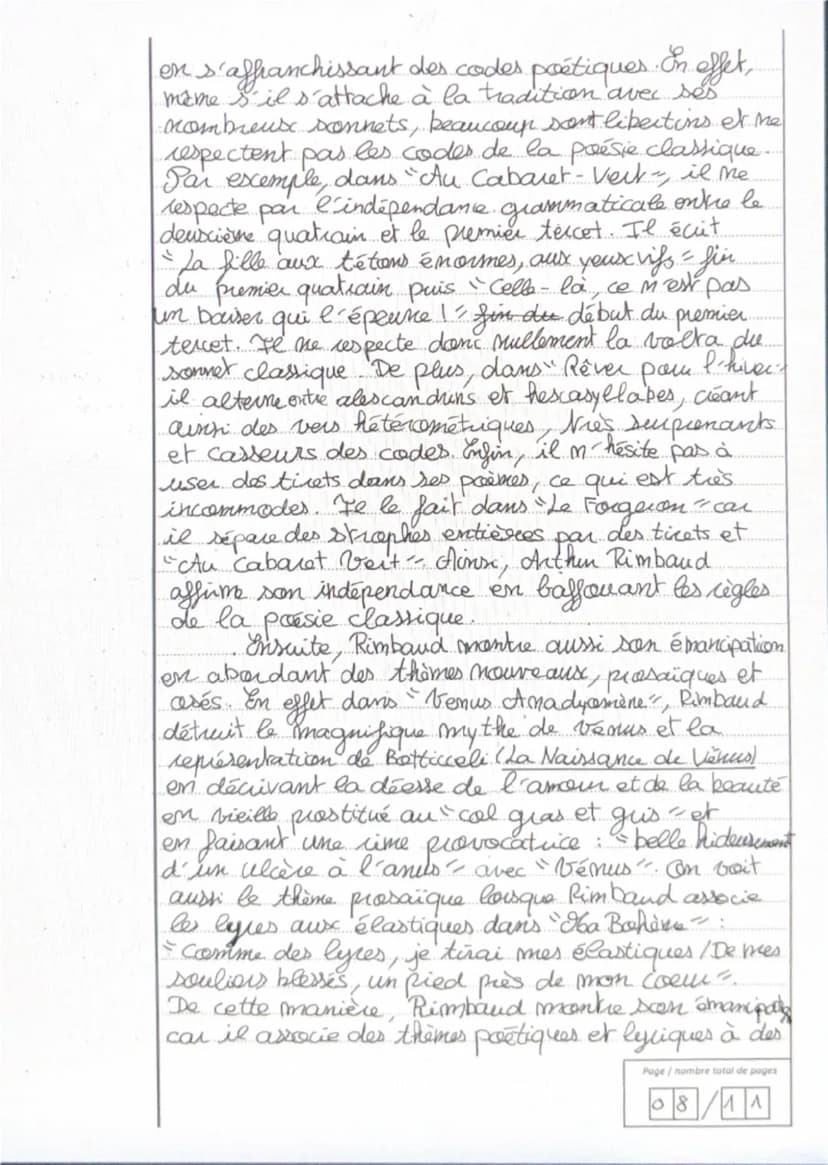 en s'affranchissant des codes poétiques. En effet,
même s'il s'attache à la tradition avec ses
nombreux sonnets, beaucoup sont libertins et ne
respectent pas les codes de la poésie classique.
Par exemple, dans "Au Cabaret-Vert", il ne
respecte par l'indépendance grammaticale entre le
deuxième quatrain et le premier tercet. Il écrit
"La fille aux tétons énormes, aux yeux vifs" fin
du premier quatrain puis "Celle-là, ce n'est pas
un baiser qui l'épeure !" fin du début du premier
tercet. Il ne respecte donc nullement la volta du
sonnet classique. De plus, dans "Rêver pour l'hiver"
il alterne entre alexandrins et hexasyllabes, créant
ainsi des vers hétérométriques, très surprenants
et casseurs des codes. Enfin, il n'hésite pas à
user des tirets dans ses poèmes, ce qui est très
incommodes. Il le fait dans "Le Forgeron" car
il sépare des strophes entières par des tirets et
"Au Cabaret Vert". Ainsi, Arthur Rimbaud
affirme son indépendance en baffouant les règles
de la poésie classique.
Ensuite, Rimbaud montre aussi son émancipation
en abordant des thèmes nouveaux, prosaïques et
osés. En effet dans "Venus Anadyomène", Rimbaud
détruit le magnifique mythe de Vénus et la
représentation de Botticceli (La Naissance de Vénus)
en décrivant la déesse de l'amour et de la beauté
en vieille prostitué au "col gras et gris" et
en faisant une rime provocatrice : "belle hideusement
d'un ulcère à l'anus" avec "Vénus". On voit
aussi le thème prosaïque lorsque Rimbaud associe
les lyres aux élastiques dans "Ma Bohème" :
"Comme des lyres, je tirai mes élastiques / De mes
souliers blessés, un pied près de mon coeur".
De cette manière, Rimbaud montre son émancipat°
car il associe des thèmes poétiques et lyriques à des
Page / nombre total de pages
08/11